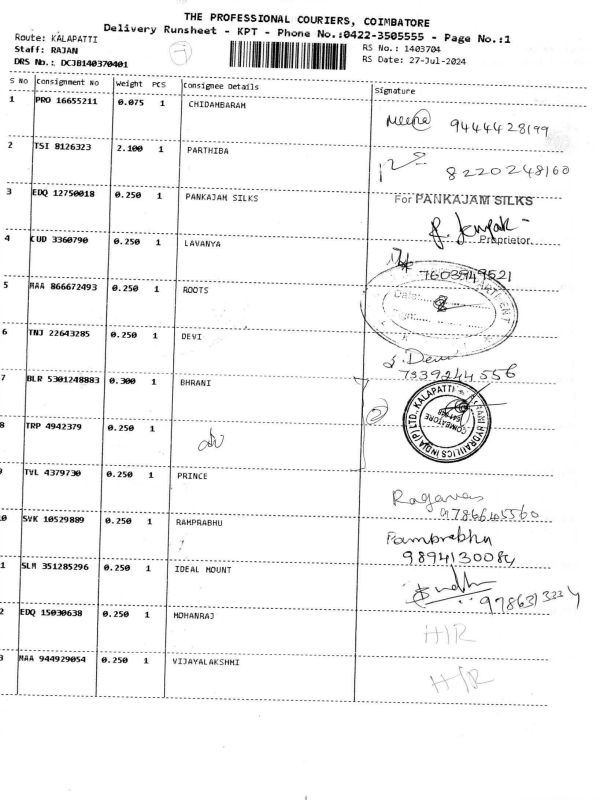 THE PROFESSIONAL COURIERS, COIMBATORE
Delivery Runsheet - KPT - Phone No.:0422-3505555 - Page No.:1
Route: KALAPATTI
RS No.: 1403704
Staff: RAJAN
RS Date: 27-Jul-2024
DRS No.: DCJB140370401
S No Consignment No Weight PCS Consignee Details Signature
1 PRO 16655211 0.075 1 CHIDAMBARAM
Meena 9444428199
2 TSI 8126323 2.100 1 PARTHIBA
8220248160
3 EDQ 12750018 0.250 1 PANKAJAM SILKS For PANKAJAM SILKS
Proprietor
4 CUD 3360790 0.250 1 LAVANYA
7603949521
5 MAA 866672493 0.250 1 ROOTS
Date:
6 TNJ 22643285 0.250 1 DEVI
S. Devi
7339244556
7 BLR 5301248883 0.300 1 BHRANI
HYDRAULICS INDIA (P) LTD., KALAPATTI
COIMBATORE
8 TRP 4942379 0.250 1
9 TVL 4379730 0.250 1 PRINCE
Ragavan
97866405560
0 SVK 10529889 0.250 1 RAMPRABHU
Ramprabhu
9894130084
1 SLM 351285296 0.250 1 IDEAL MOUNT
2 EDQ 15030638 0.250 1 MOHANRAJ
H/R
3 MAA 944929054 0.250 1 VIJAYALAKSHMI
H/R